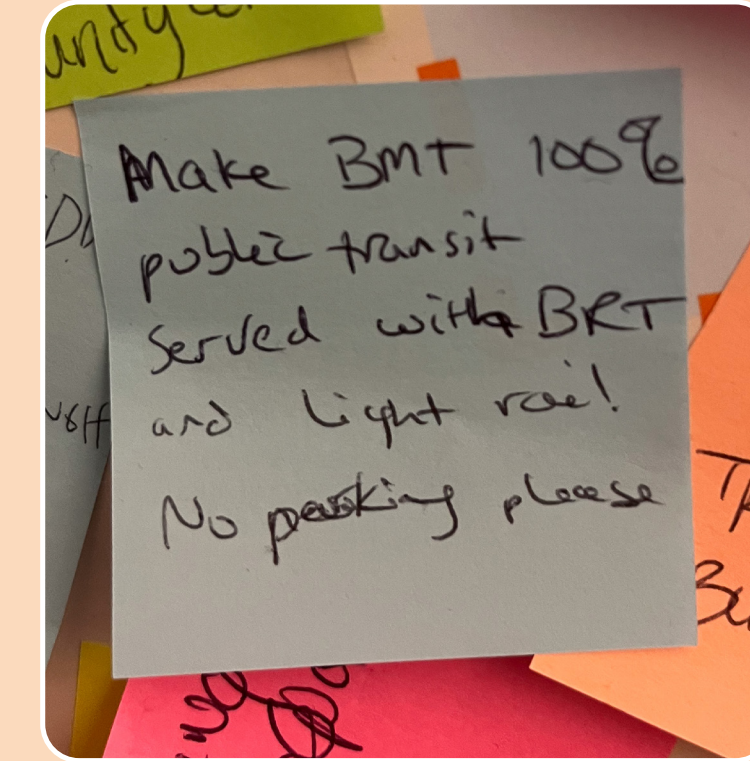 Make BMT 100%
public transit
served with BRT
and light rail!
No parking please